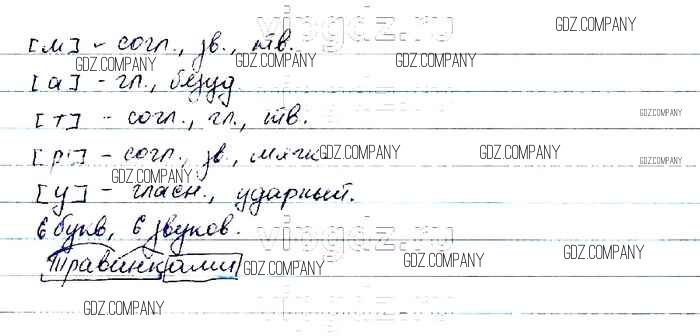 [м] - согл., зв., тв.
[а] - гл., безуд.
[т] - согл., гл., тв.
[р'] - согл., зв., мягк.
[у] - гласн., ударный.
6 букв, 6 звуков.
Травинками
vipgdz.ru
GDZ.COMPANY
GDZ.COMPANY
GDZ.COMPANY
GDZ.COMPANY
GDZ.COMPANY
GDZ.COMPANY
GDZ.COMPANY
GDZ.COMPANY
GDZ.COMPANY
GDZ.COMPANY
vipgdz.ru
GDZ.COMPANY
GDZ.COMPANY
GDZ.COMPANY
GDZ.COMPANY
GDZ.COMPANY